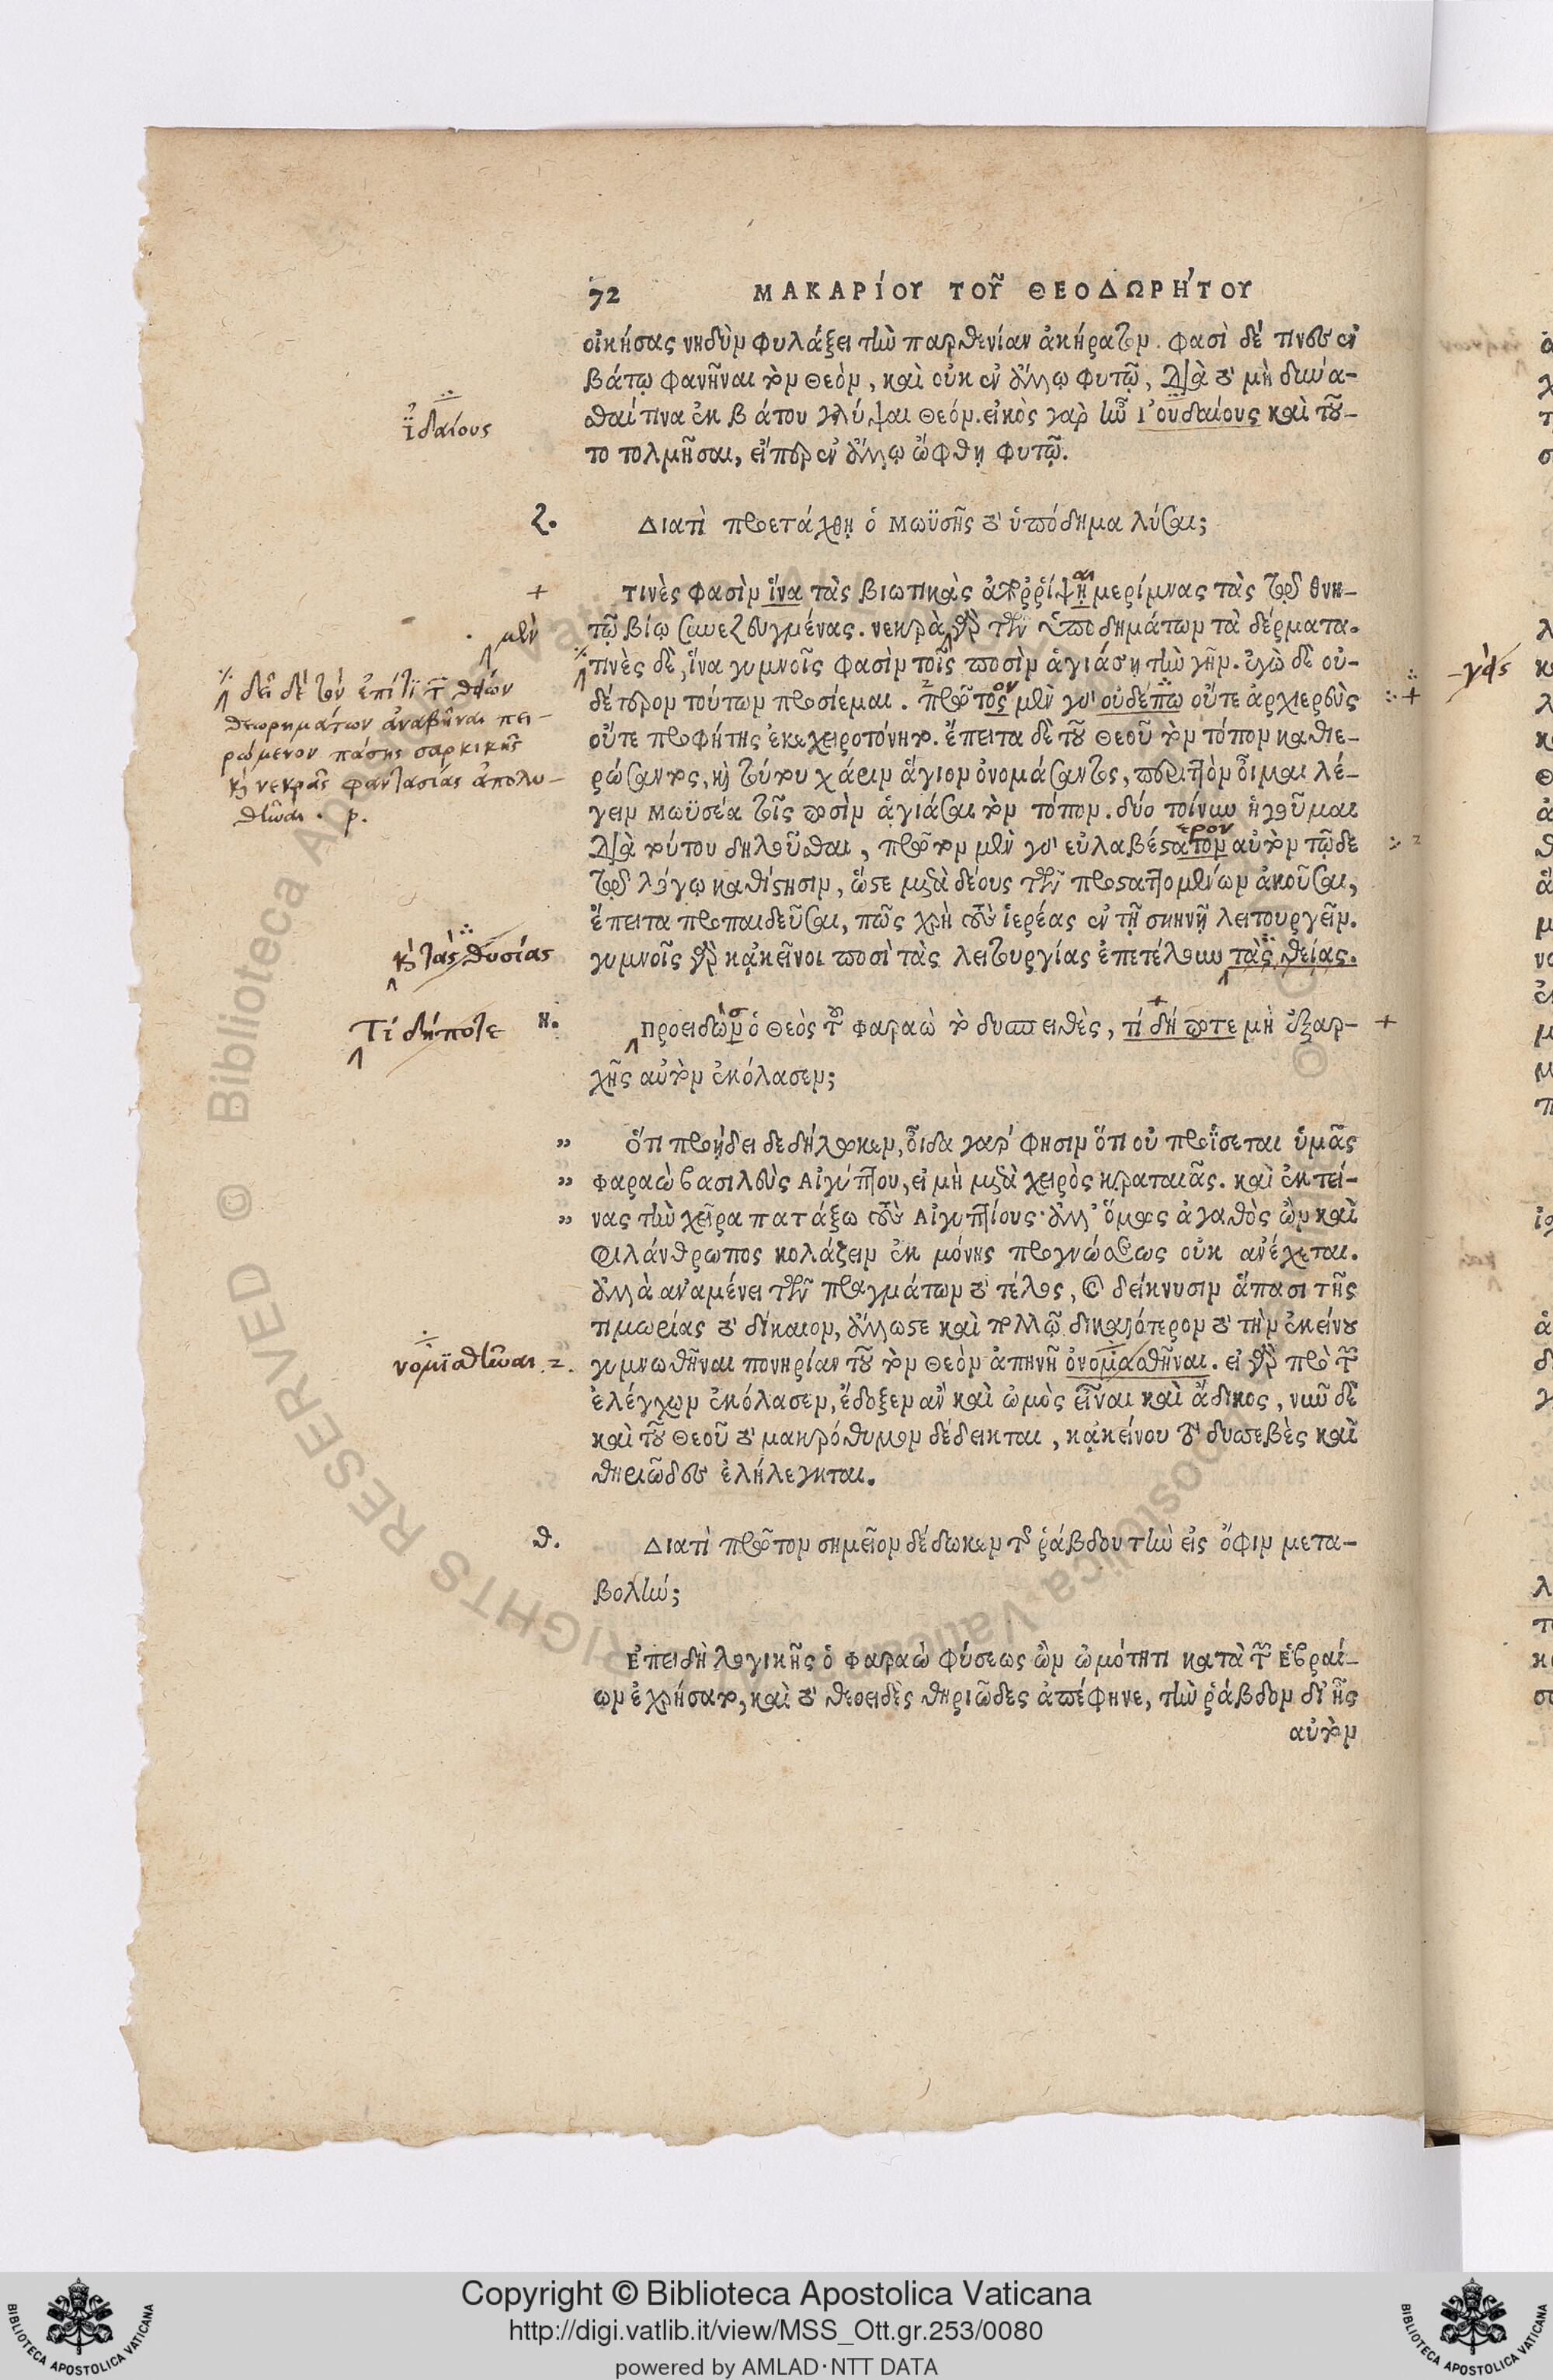 72 ΜΑΚΑΡίΟΥ ΤΟΥ͂ ΘΕΟΔΩΡΉΤΟΥ
οἰκήσας νηδὺν φυλάξει τὴν παρθενίαν ἀκήρατον. φασὶ δέ τινες ἐν
βάτῳ φανῆναι τὸν θεὸν, καὶ οὐκ ἐν ἄλλῳ φυτῷ, διὰ τὸ μὴ δύνα-
σθαί τινα ἐκ βάτου γλύψαι θεόν. εἰκὸς γὰρ ἦν Ἰουδαίους καὶ τοῦ-
ἰδαίους
το τολμῆσαι, εἴπερ ἐν ἄλλῳ ὤφθη φυτῷ.
ζ. Διατί προετάχθη ὁ Μωϋσῆς τὸ ὑπόδημα λύσαι;
+ Τινὲς φασὶν ἵνα τὰς βιωτικὰς ἀποῤῥίψῃ μερίμνας τὰς τῷ θνη-
αι
μὲν
τῷ βίῳ συνεζευγμένας. νεκρὰ γὰρ τῶν ὑποδημάτων τὰ δέρματα.
τινὲς δὲ, ἵνα γυμνοῖς φασὶν τοῖς ποσὶν ἁγιάσῃ τὴν γῆν. ἐγὼ δὲ οὐ-
δεῖ δὲ τὸν ἐπί τι τῶν θείων
θεωρημάτων ἀναβῆναι πει-
ρώμενον πάσης σαρκικῆς
καὶ νεκρᾶς φαντασίας ἀπολυ-
θῆναι. ρ.
δέτερον τούτων προσίεμαι. πρῶτος μὲν γὰρ οὐδέπω οὔτε ἀρχιερεὺς +
ον
οὔτε προφήτης ἐκεχειροτόνητο. ἔπειτα δὲ τοῦ θεοῦ τὸν τόπον καθιε-
ρώσαντος, καὶ τούτου χάριν ἅγιον ὀνομάσαντος, περιττὸν οἶμαι λέ-
γειν Μωϋσέα τοῖς ποσὶν ἁγιάσαι τὸν τόπον. δύο τοίνυν ἡγοῦμαι
διὰ τούτου δηλοῦσθαι, πρῶτον μὲν γὰρ εὐλαβέστατον αὐτὸν τῷδε
ερον
τῷ λόγῳ καθίστησιν, ὥστε μετὰ δέους τῶν προσταττομένων ἀκοῦσαι,
ἔπειτα προπαιδεῦσαι, πῶς χρὴ τοὺς ἱερέας ἐν τῇ σκηνῇ λειτουργεῖν.
γυμνοῖς γὰρ κᾀκεῖνοι ποσὶ τὰς λειτουργίας ἐπετέλουν τὰς θείας.
καὶ τὰς θυσίας
Τί δήποτε
η. Προειδὼν ὁ θεὸς τοῦ φαραὼ τὸ δυσπειθὲς, τί δήποτε μὴ ἐξαρ- +
σ
χῆς αὐτὸν ἐκόλασεν;
„ Ὅτι προῄδει δεδήλωκεν, οἶδα γάρ φησιν ὅτι οὐ προήσεται ὑμᾶς
„ φαραὼ βασιλεὺς Αἰγύπτου, εἰ μὴ μετὰ χειρὸς κραταιᾶς. καὶ ἐκτεί-
„ νας τὴν χεῖρα πατάξω τοὺς Αἰγυπτίους· ἀλλ' ὅμως ἀγαθὸς ὢν καὶ
φιλάνθρωπος κολάζειν ἐκ μόνης προγνώσεως οὐκ ἀνέχεται.
ἀλλὰ ἀναμένει τῶν πραγμάτων τὸ τέλος, καὶ δείκνυσιν ἅπασι τῆς
τιμωρίας τὸ δίκαιον, ἄλλωστε καὶ πολλῷ δικαιότερον τὸ τὴν ἐκείνου
γυμνωθῆναι πονηρίαν τοῦ τὸν θεὸν ἀπηνῆ ὀνομασθῆναι. εἰ γὰρ πρὸ τῶν
νομισθῆναι
ἐλέγχων ἐκόλασεν, ἔδοξεν ἂν καὶ ὠμὸς εἶναι καὶ ἄδικος, νῦν δὲ
καὶ τοῦ θεοῦ τὸ μακρόθυμον δέδεικται, κᾀκείνου τὸ δυσσεβὲς καὶ
θηριῶδες ἐλήλεγκται.
θ. Διατί πρῶτον σημεῖον δέδωκεν τῆς ῥάβδου τὴν εἰς ὄφιν μετα-
βολήν;
Ἐπειδὴ λογικῆς ὁ φαραὼ φύσεως ὢν ὠμότητι κατὰ τῶν Ἑβραί-
ων ἐχρήσατο, καὶ τὸ θεοειδὲς θηριῶδες ἀπέφηνε, τὴν ῥάβδον δι' ἧς
αὐτὸν
Copyright © Biblioteca Apostolica Vaticana
http://digi.vatlib.it/view/MSS_Ott.gr.253/0080
powered by AMLAD·NTT DATA
BIBLIOTECA APOSTOLICA VATICANA
BIBLIOTECA APOSTOLICA VATICANA